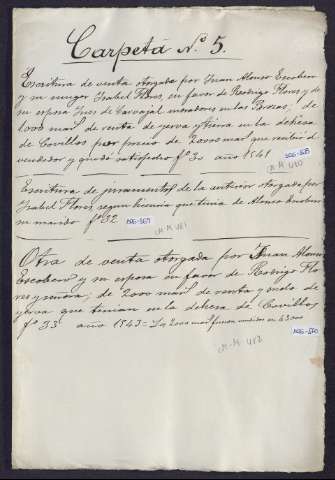 Carpeta Nº 5.
Escritura de venta otorgada por Juan Alonso Escobero
y su muger Isabel Flores, en favor de Rodrigo Flores y de
su esposa Ines de Carvajal moradores en las Brozas; de
1.000 mail de renta de yerva y tierra en la dehesa
de Covillos por precio de 20.000 mail que recibió el
vendedor y quedó satisfecho fº 30 año 1541
M-M 480
Escritura de juramento de la anterior otorgada por
Isabel Flores segun licencia que tenia de Alonso Escobero
su marido fº 32
M-M 481
Otra de venta otorgada por Juan Alonso
Escobero y su esposa en favor de Rodrigo Flo
res y señora; de 2000 mail de renta y
yerva que tenian en la dehesa de Covillos
fº 33 año 1543 = Los 2000 mail fueron vendidos en 43000
M-M 482